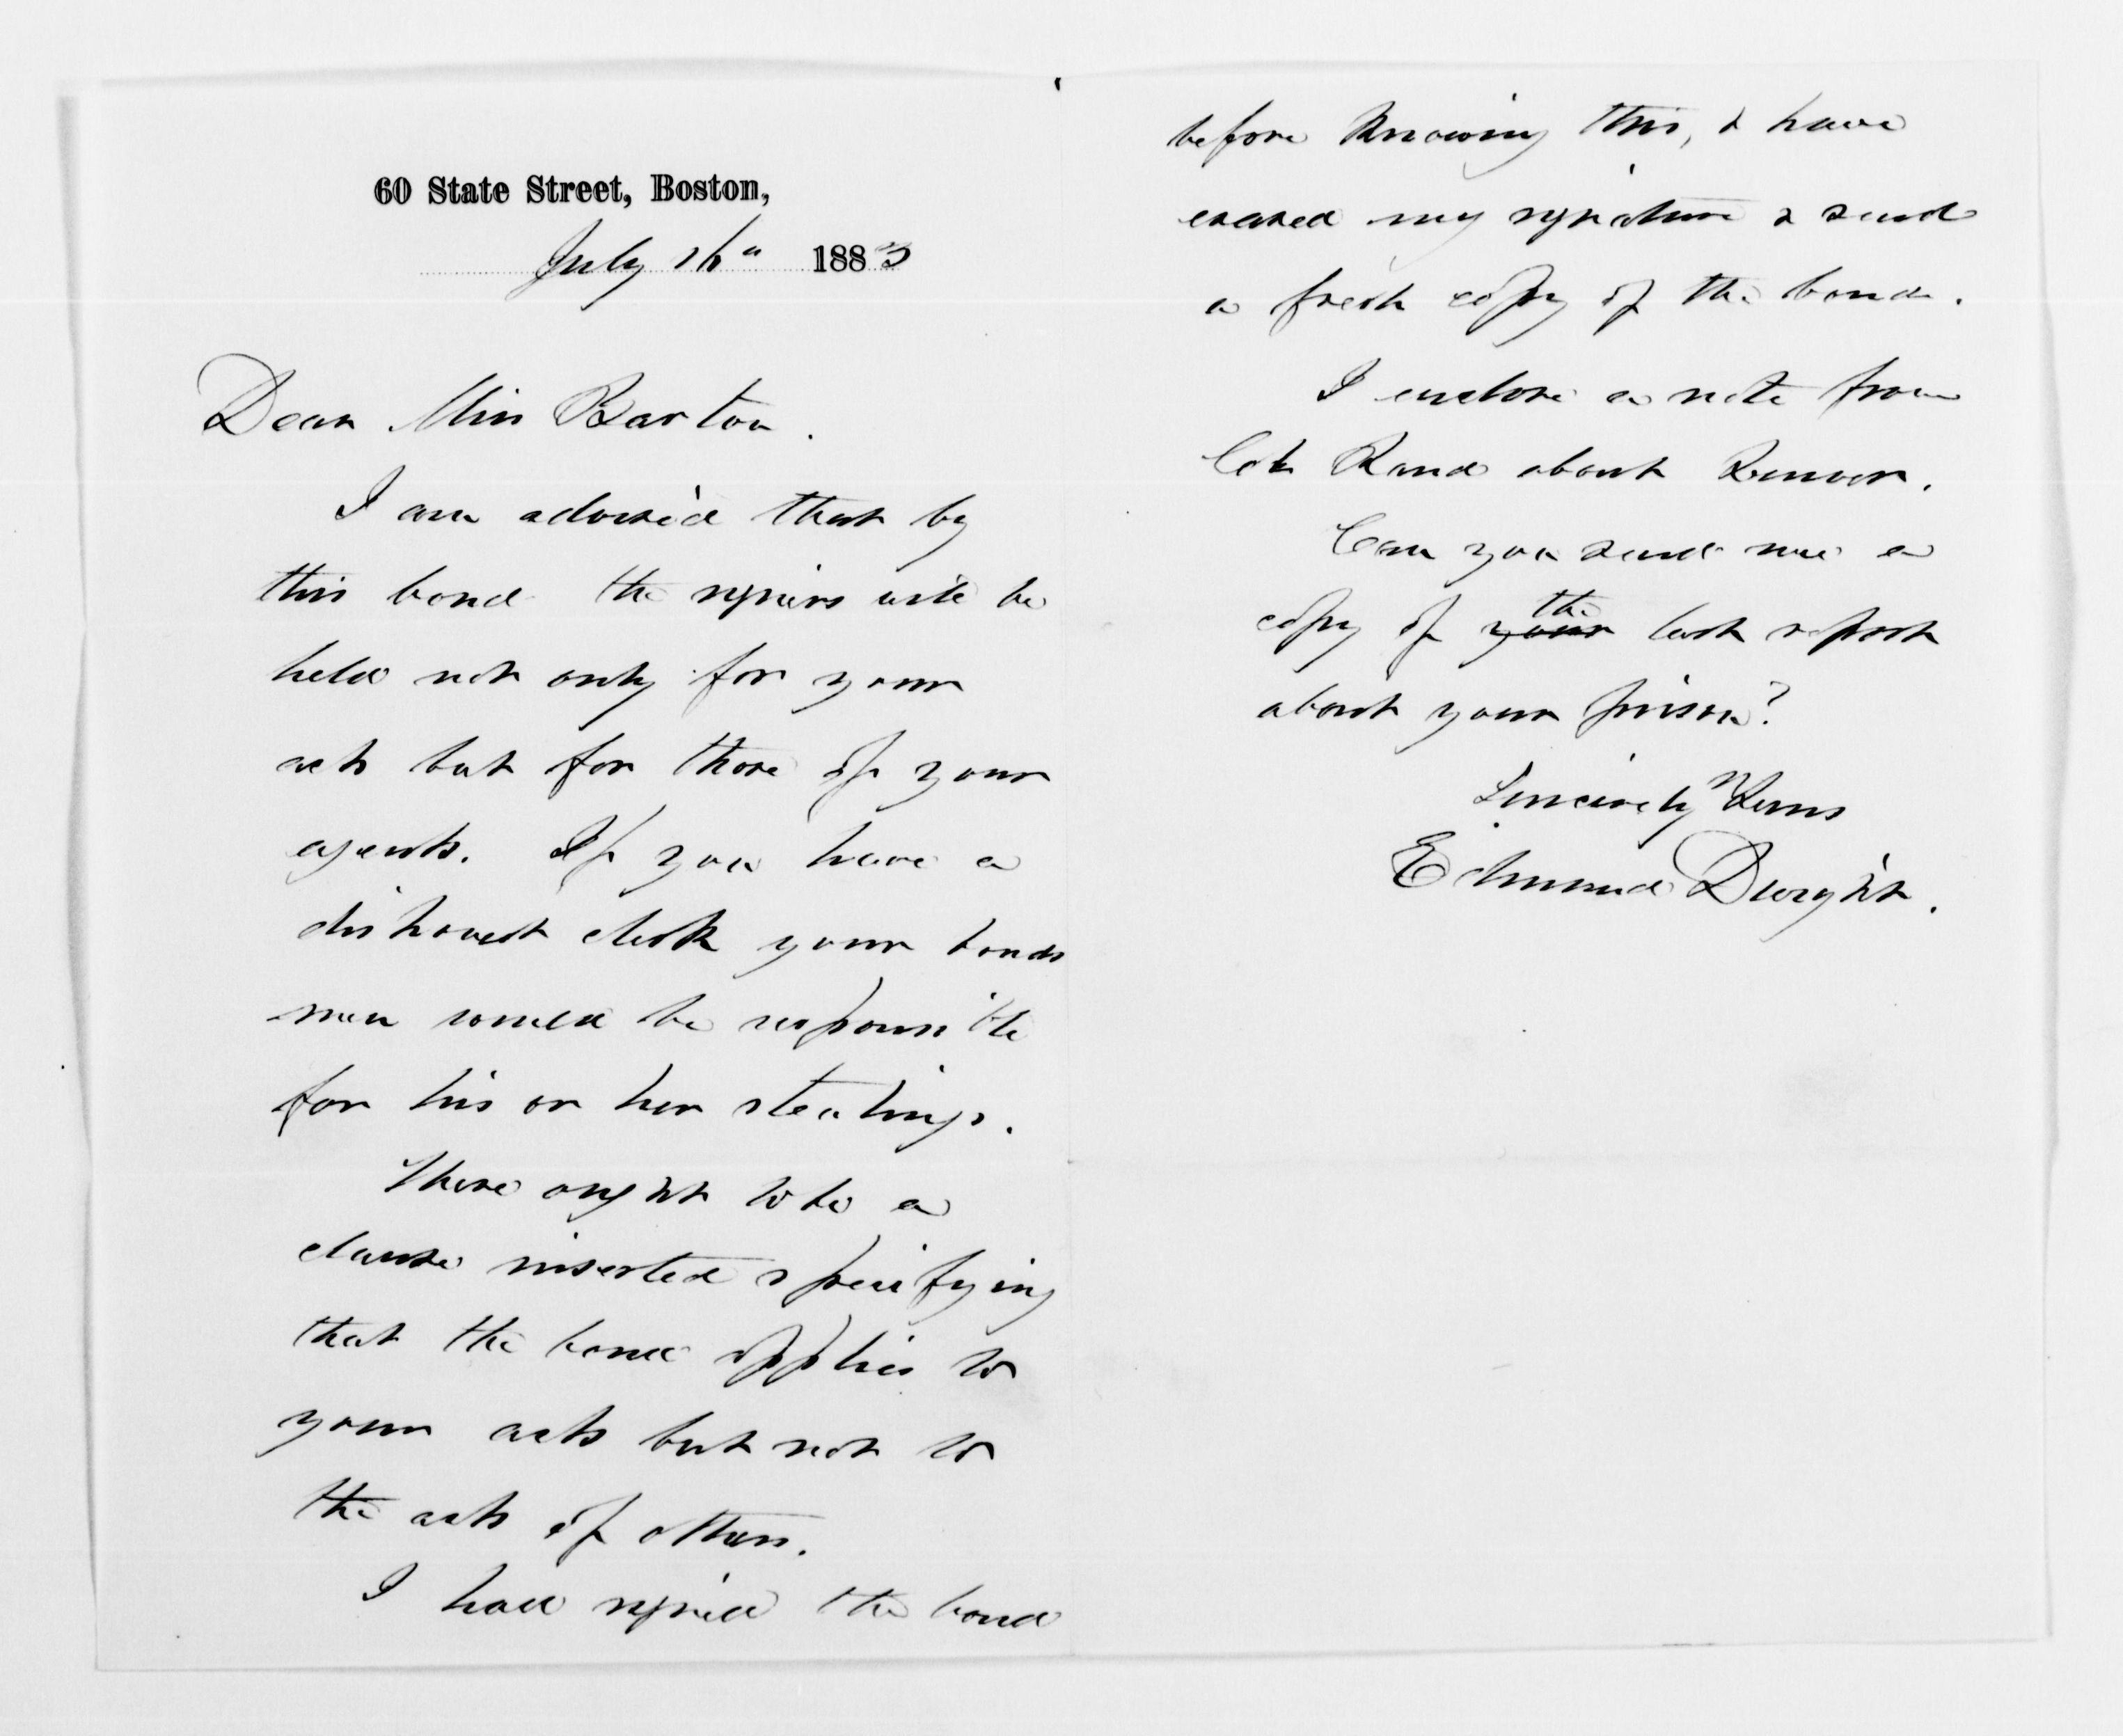 60 State Street, Boston,
July 16" 1883
Dear Miss Barton.
I am advised that by
this bond the signers will be
held not only for your
acts but for those of your
agents. If you have a
dishonest clerk your bonds
men would be responsible
for his or her stealings.
There ought to be a
clause inserted specifying
that the bond applies to
your acts but not to
the acts of others.
I had signed the bond
before knowing this, & have
erased my signature & send
a fresh copy of the bond.
I enclose a note from
Col. Rand about
Can you send me a
copy of ~~your~~ the last report
about your prison?
Sincerely Yours
Edmund Dwight.